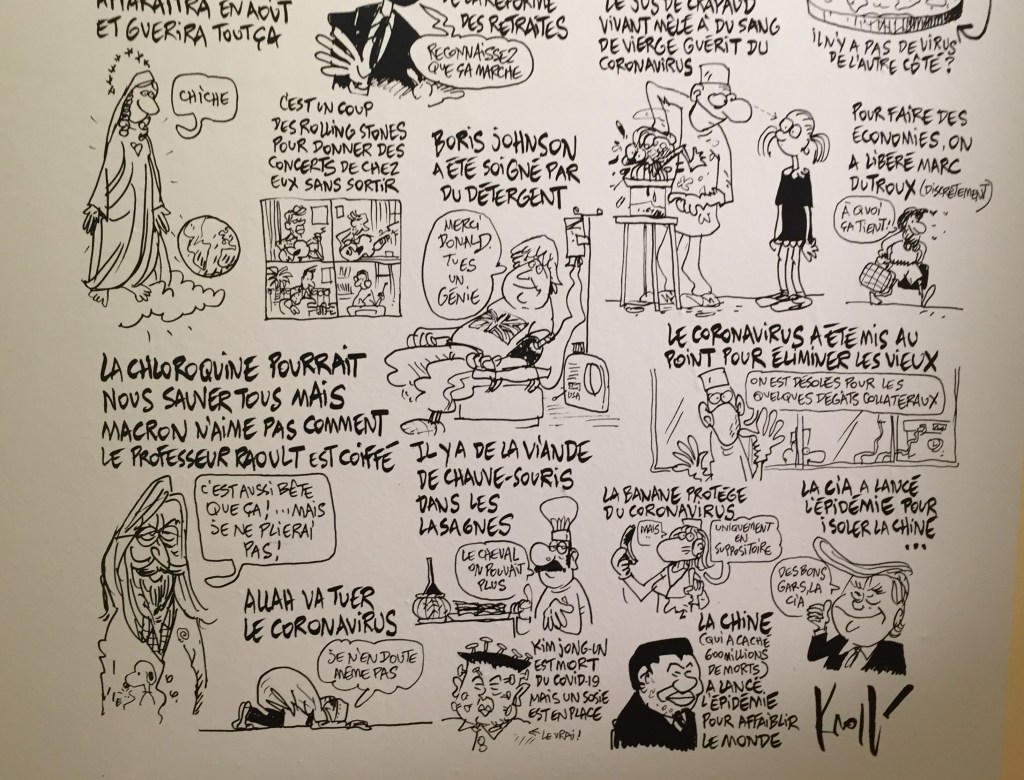 APPARAÎTRA EN AOÛT
ET GUÉRIRA TOUT ÇA
CHICHE
DE LA RÉFORME
DES RETRAITES
RECONNAISSEZ
QUE ÇA MARCHE
LE JUS DE CRAPAUD
VIVANT MÊLÉ À DU SANG
DE VIERGE GUÉRIT DU
CORONAVIRUS
IL N'Y A PAS DE VIRUS
DE L'AUTRE CÔTÉ ?
C'EST UN COUP
DES ROLLING STONES
POUR DONNER DES
CONCERTS DE CHEZ
EUX SANS SORTIR
BORIS JOHNSON
A ÉTÉ SOIGNÉ PAR
DU DÉTERGENT
MERCI
DONALD,
TU ES
UN
GÉNIE
USA
POUR FAIRE DES
ÉCONOMIES, ON
A LIBÉRÉ MARC
DUTROUX (DISCRÈTEMENT)
À QUOI
ÇA TIENT !
LA CHLOROQUINE POURRAIT
NOUS SAUVER TOUS MAIS
MACRON N'AIME PAS COMMENT
LE PROFESSEUR RAOULT EST COIFFÉ
C'EST AUSSI BÊTE
QUE ÇA !... MAIS
JE NE PLIERAI
PAS !
LE CORONAVIRUS A ÉTÉ MIS AU
POINT POUR ÉLIMINER LES VIEUX
ON EST DÉSOLÉS POUR LES
QUELQUES DÉGATS COLLATÉRAUX
IL Y A DE LA VIANDE
DE CHAUVE-SOURIS
DANS LES
LASAGNES
LE CHEVAL
ON POUVAIT
PLUS
LA BANANE PROTÈGE
DU CORONAVIRUS
MAIS..
UNIQUEMENT
EN
SUPPOSITOIRE
LA CIA A LANCÉ
L'ÉPIDÉMIE POUR
ISOLER LA CHINE
...
DES BONS
GARS, LA
CIA
ALLAH VA TUER
LE CORONAVIRUS
JE N'EN DOUTE
MÊME PAS
KIM JONG-UN
EST MORT
DU COVID-19
MAIS UN SOSIE
EST EN PLACE
LE VRAI !
LA CHINE
(QUI A CACHÉ
600 MILLIONS
DE MORTS)
A LANCÉ
L'ÉPIDÉMIE
POUR AFFAIBLIR
LE MONDE
Kroll